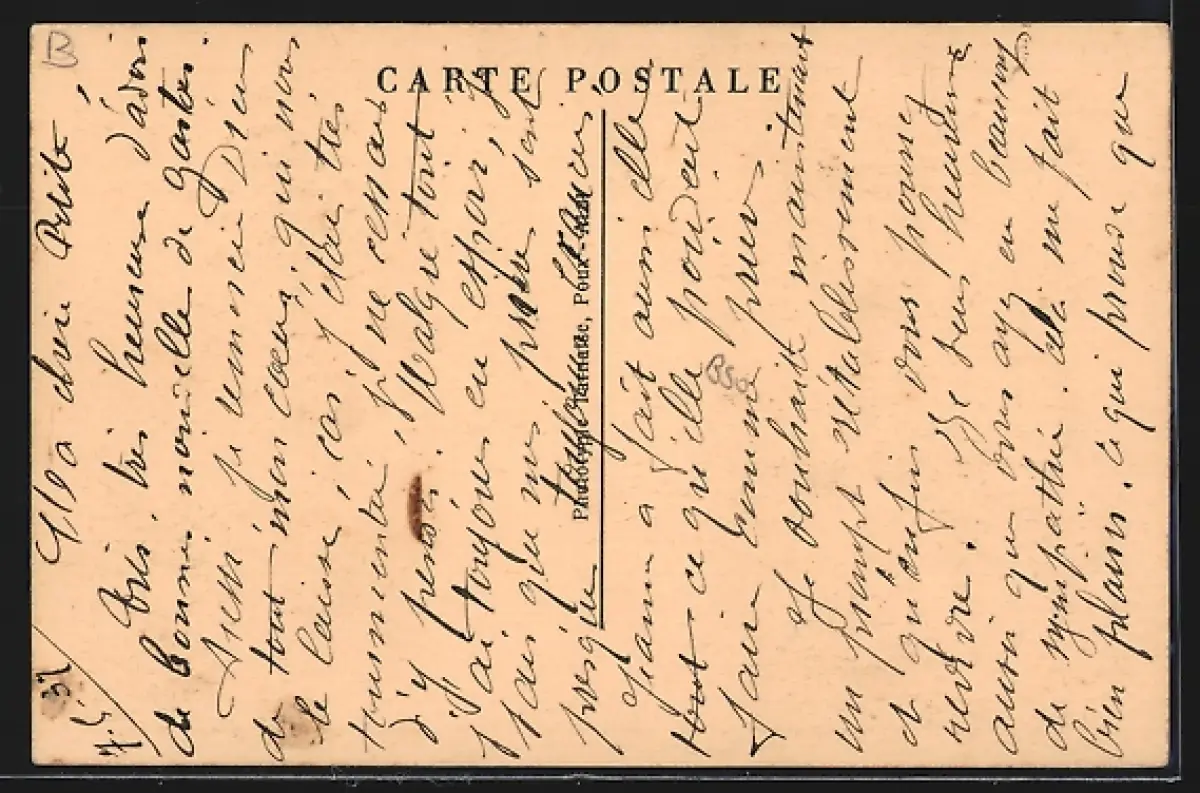 CARTE POSTALE
Phototypie Tarnaise, Poux-Albi
B
BSO
Ma chère Petite
Très, très heureuse d'avoir
de bonnes nouvelles de Gaston.
Aussi je remercie Dieu
de tout mon cœur, qui nous
le laisse, car j'étais très
tourmentée, je ne cessais
d'y penser. Malgré tout
j'ai toujours eu espoir, je
sais que nos prières sont
presque toujours
Jeanne a fait aussi elle
tout ce qu'elle pouvait
faire comme prier
Je souhaite maintenant
un prompt rétablissement
et qu'enfin vous pouvez
revivre. Je suis heureuse
aussi que vous ayez eu beaucoup
de sympathie. cela me fait
bien plaisir. ce qui prouve que